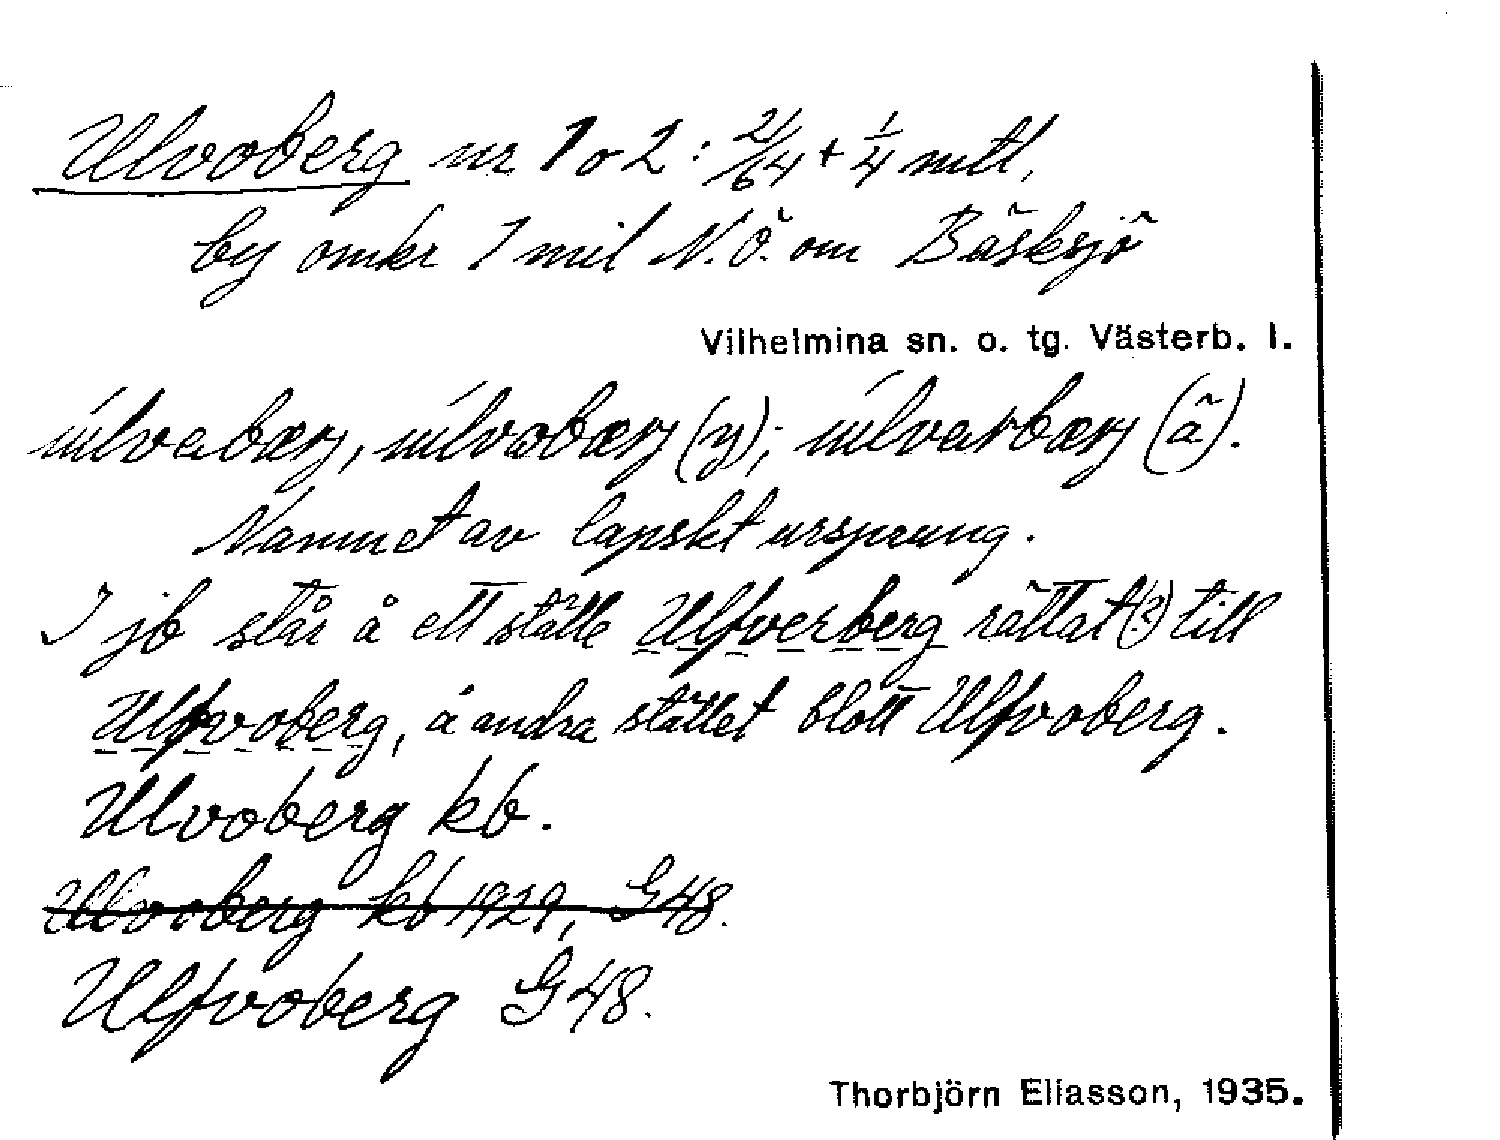 Ulvoberg nr 1 o 2: 21/64 + 1/4 mtl,
by omkr 1 mil N.Ö. om Bäsksjö
Vilhelmina sn. o. tg. Västerb. l.
(y); (ä).
Namnet av lapskt ursprung.
I jb står å ett ställe Ulfverberg rättat (?) till
Ulfvoberg, å andra stället blott Ulfvoberg.
Ulvoberg kb.
Ulvoberg kb 1929, G48.
Ulfvoberg G48.
Thorbjörn Eliasson, 1935.